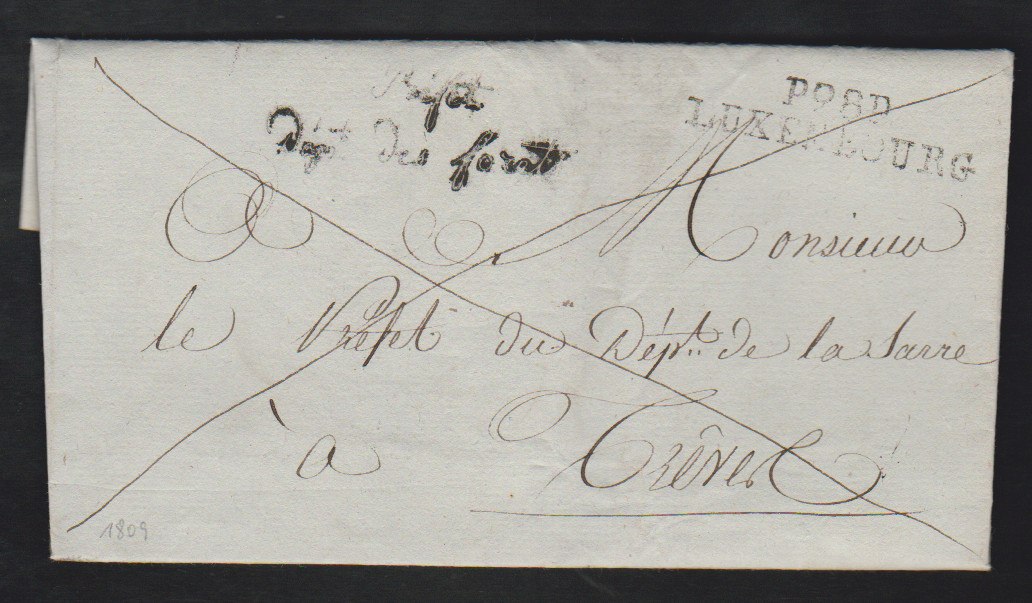 Préfet
Dépt. des forêts
P98P
LUXEMBOURG
Monsieur
le Préfet du Dépt. de la Sarre
à Trêves
1809